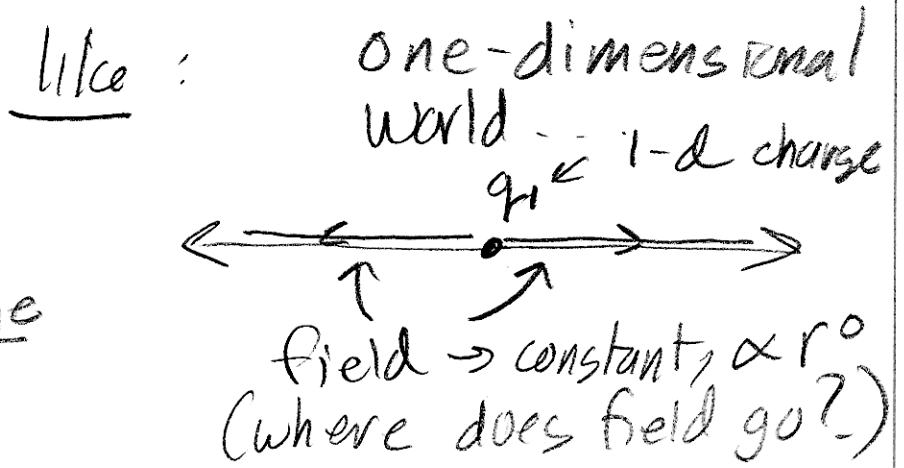 like : one-dimensional
world... 1-d charge
q₁
field → constant, ∝ r⁰
(where does field go?)